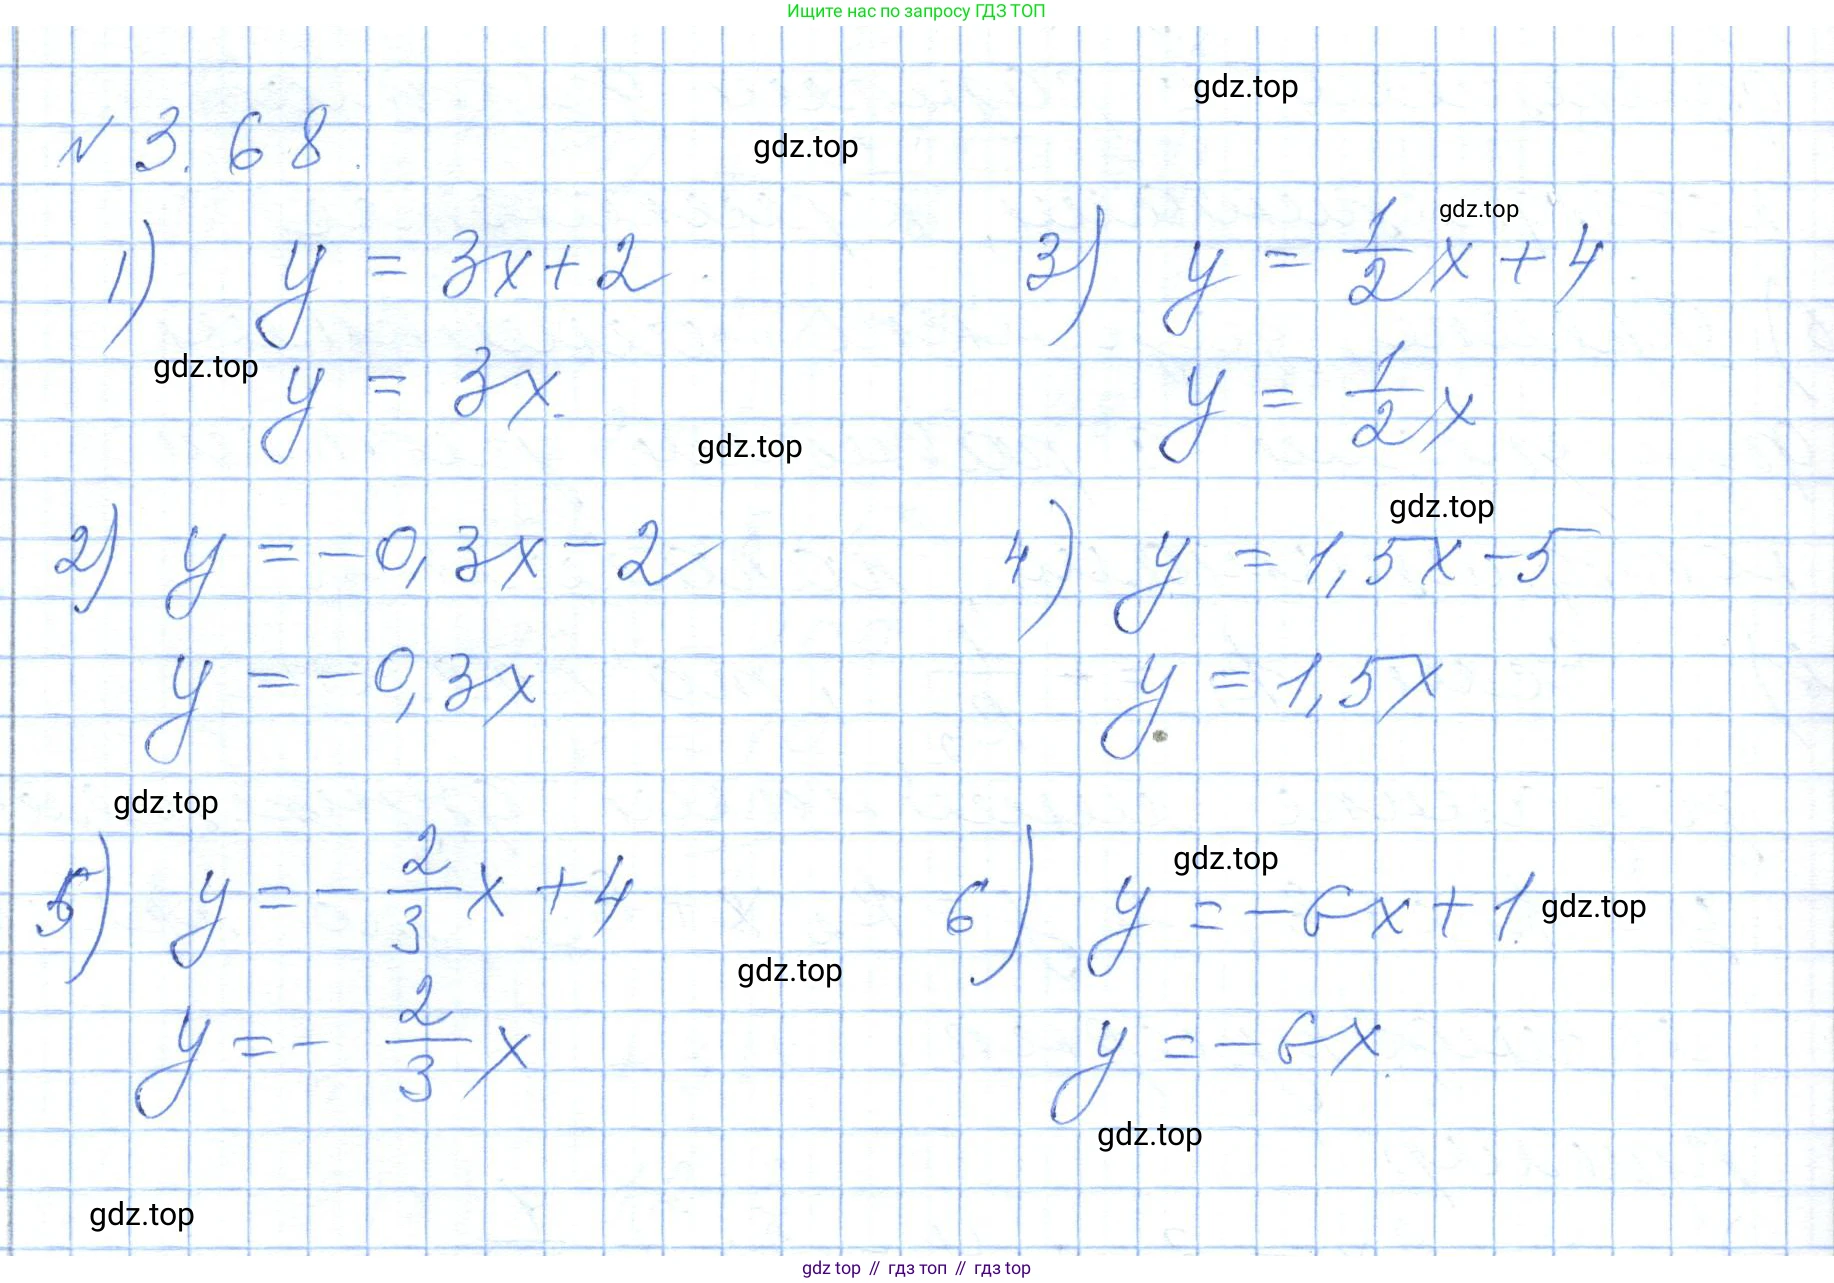 Ищите нас по запросу ГДЗ ТОП
gdz.top
№ 3.68.
gdz.top
1) y = 3x + 2
y = 3x.
gdz.top
3) y = 1/2 x + 4
gdz.top
y = 1/2 x
gdz.top
2) y = -0,3x - 2
y = -0,3x
gdz.top
4) y = 1,5x - 5
y = 1,5x
gdz.top
5) y = - 2/3 x + 4
y = - 2/3 x
gdz.top
gdz.top
6) y = -6x + 1.
gdz.top
y = -6x.
gdz.top
gdz.top
gdz top // гдз топ // гдз top